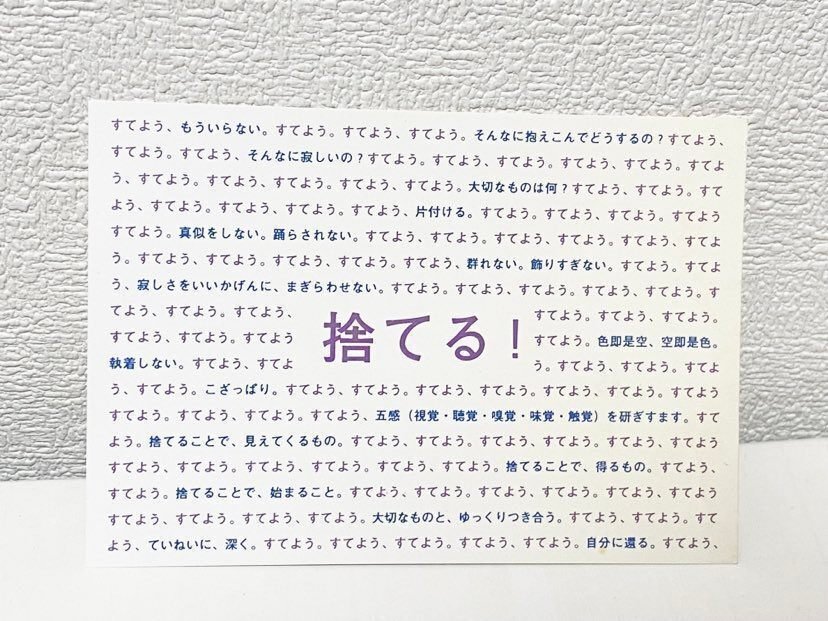 すてよう、もういらない。すてよう。すてよう、すてよう。そんなに抱えこんでどうするの？すてよう、
すてよう。すてよう、そんなに寂しいの？すてよう。すてよう、すてよう。すてよう、すてよう。すてよ
う、すてよう。すてよう、すてよう。すてよう、すてよう。大切なものは何？すてよう、すてよう。すて
よう、すてよう。すてよう、すてよう。すてよう、片付ける。すてよう。すてよう、すてよう。すてよう
すてよう。真似をしない。踊らされない。すてよう、すてよう。すてよう、すてよう。すてよう、すてよ
う。すてよう、すてよう。すてよう、すてよう。すてよう、群れない。飾りすぎない。すてよう。すてよ
う、寂しさをいいかげんに、まぎらわせない。すてよう。すてよう、すてよう。すてよう、すてよう。す
てよう、すてよう。すてよう、
すてよう、すてよう。すてよう
執着しない。すてよう、すてよ
捨てる！
すてよう。すてよう、すてよう。
すてよう。色即是空、空即是色。
う。すてよう、すてよう。すてよ
う、すてよう。こざっぱり。すてよう、すてよう。すてよう、すてよう。すてよう、すてよう。すてよう
すてよう。すてよう、すてよう。すてよう、五感（視覚・聴覚・嗅覚・味覚・触覚）を研ぎすます。すて
よう。捨てることで、見えてくるもの。すてよう、すてよう。すてよう、すてよう。すてよう、すてよう
すてよう、すてよう。すてよう、すてよう。すてよう、すてよう。捨てることで、得るもの。すてよう、
すてよう。捨てることで、始まること。すてよう、すてよう。すてよう、すてよう。すてよう、すてよう
すてよう、すてよう。すてよう、すてよう。大切なものと、ゆっくりつき合う。すてよう、すてよう。すて
よう、ていねいに、深く。すてよう。すてよう、すてよう。すてよう、すてよう。自分に還る。すてよう、